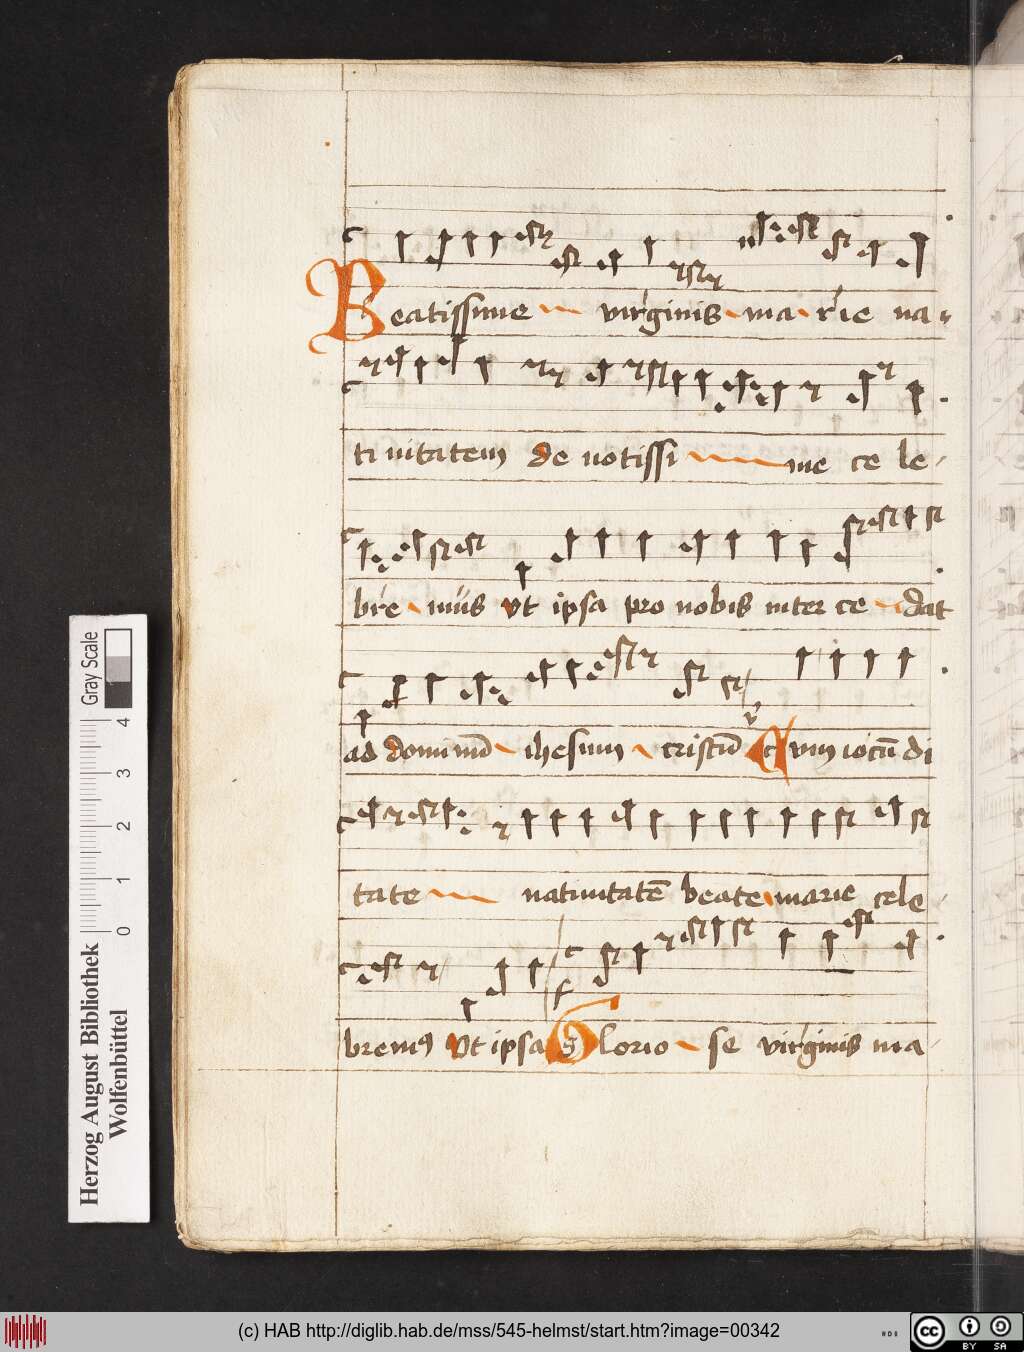 Beatissime virginis marie na
ti uitatem de uotissi me ce le
bre mus vt ipsa pro nobis inter ce dat
ad dominū ihesum cristū v Cum iocūdi
tate natiuitatē beate marie cele
bremꝯ vt ipsa Glorio se virginis ma
Gray Scale
4
3
2
1
0
Herzog August Bibliothek
Wolfenbüttel
(c) HAB http://diglib.hab.de/mss/545-helmst/start.htm?image=00342
cc BY SA